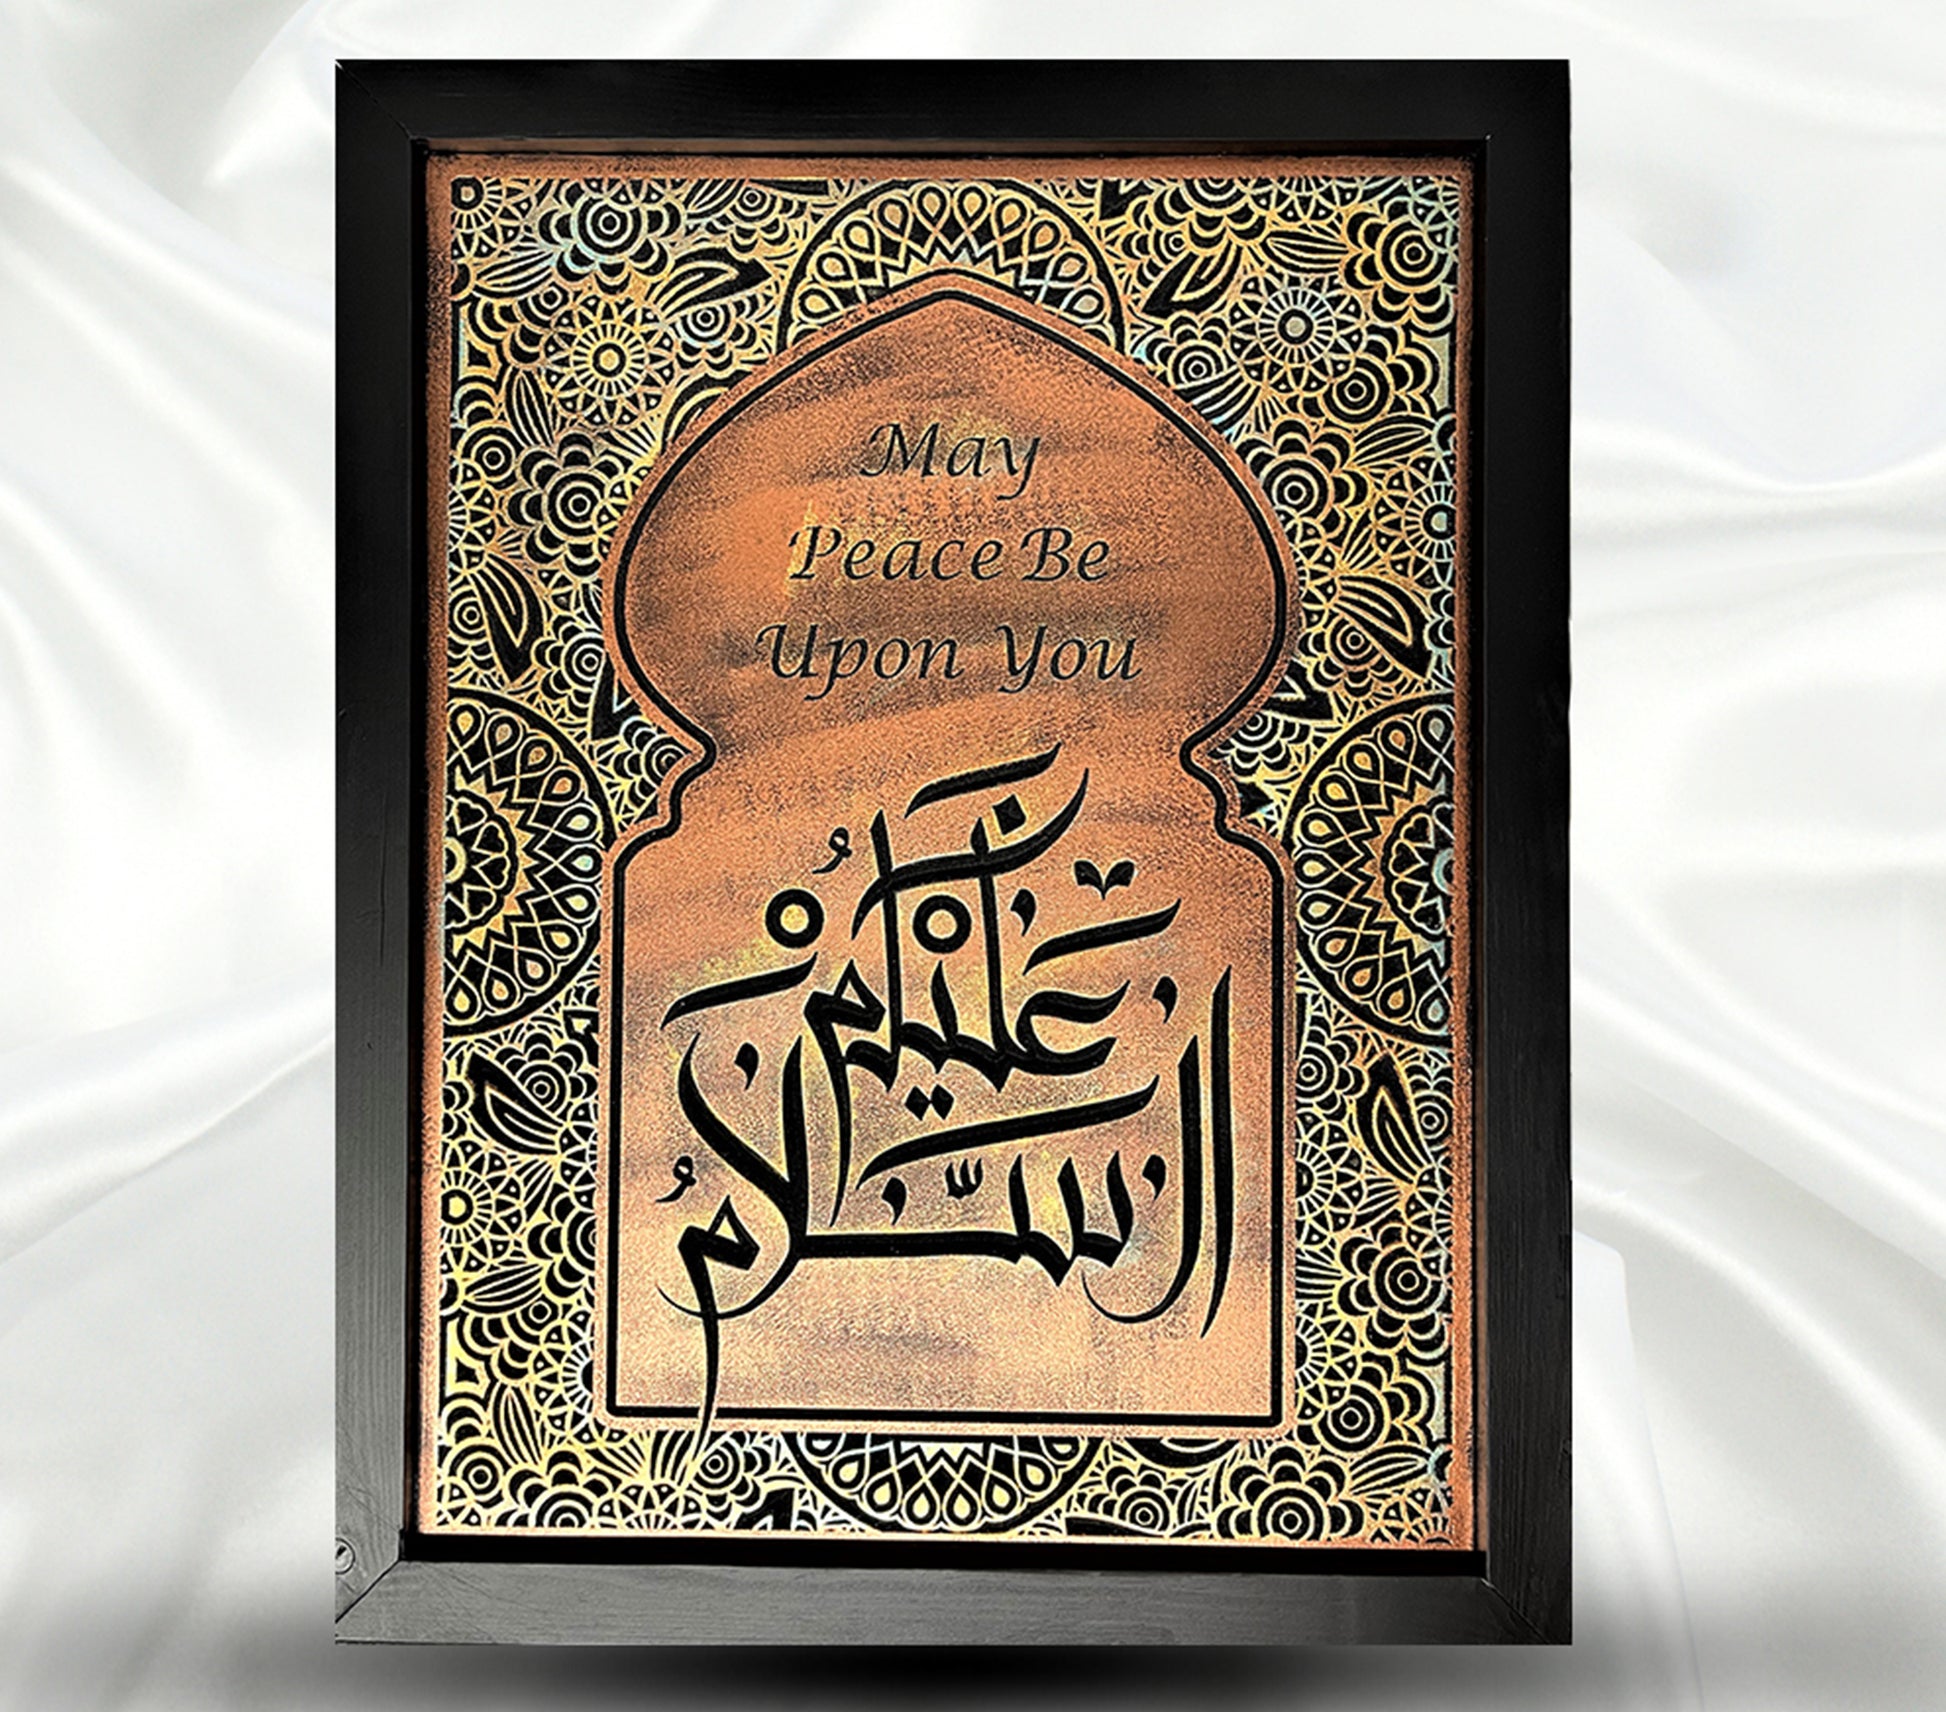 May
Peace Be
Upon You
السَّلَامُ
عَلَيْكُمْ